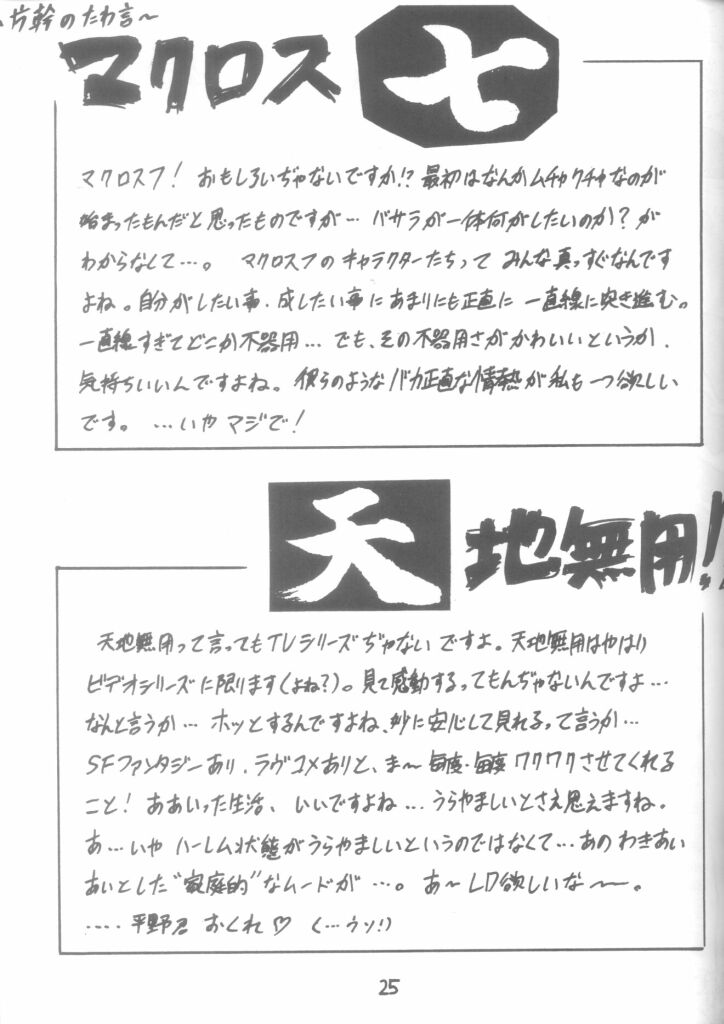 幹のたわ言～
マクロス七
マクロス7! おもしろいぢゃないですか!? 最初はなんかムチャクチャなのが
始まったもんだと思ったものですが… バサラが一体何がしたいのか?が
わからなして…。 マクロス7のキャラクターたちって みんな真っすぐなんです
よね。自分がしたい事、成したい事に あまりにも正直に 一直線に突き進む。
一直線すぎてどこか不器用… でも、その不器用さがかわいいというか、
気持ちいいんですよね。 彼らのようなバカ正直な情熱が私も一つ欲しい
です。 …いや マジで!
天地無用!
天地無用って言ってもTVシリーズぢゃないですよ。天地無用はやはり
ビデオシリーズに限ります(よね?)。見て感動するってもんぢゃないんですよ…
なんと言うか… ホッとするんですよね、妙に安心して見れるって言うか…
SFファンタジーあり、ラヴコメありと、ま～ 毎度・毎度ワクワクさせてくれる
こと! ああいった生活、いいですよね… うらやましいとさえ思えますね。
あ…いや ハーレム状態がうらやましいというのではなくて…あの わきあい
あいとした"家庭的"なムードが …。 あ～LD欲しいな～。
…… 平野君 おくれ♡ (…ウソ!)
25